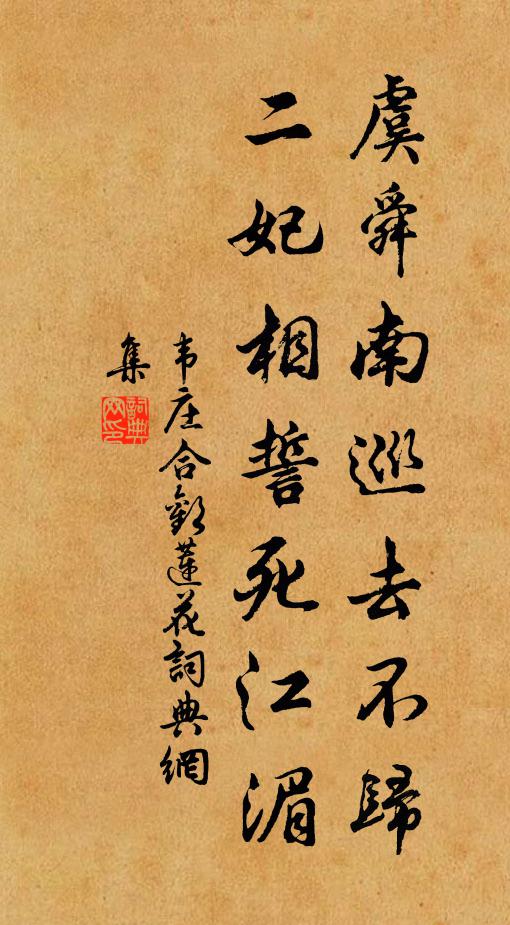 虞舜南巡去不歸
二妃相誓死江湄
韦庄合歡蓮花詞典網
集
詞典網印